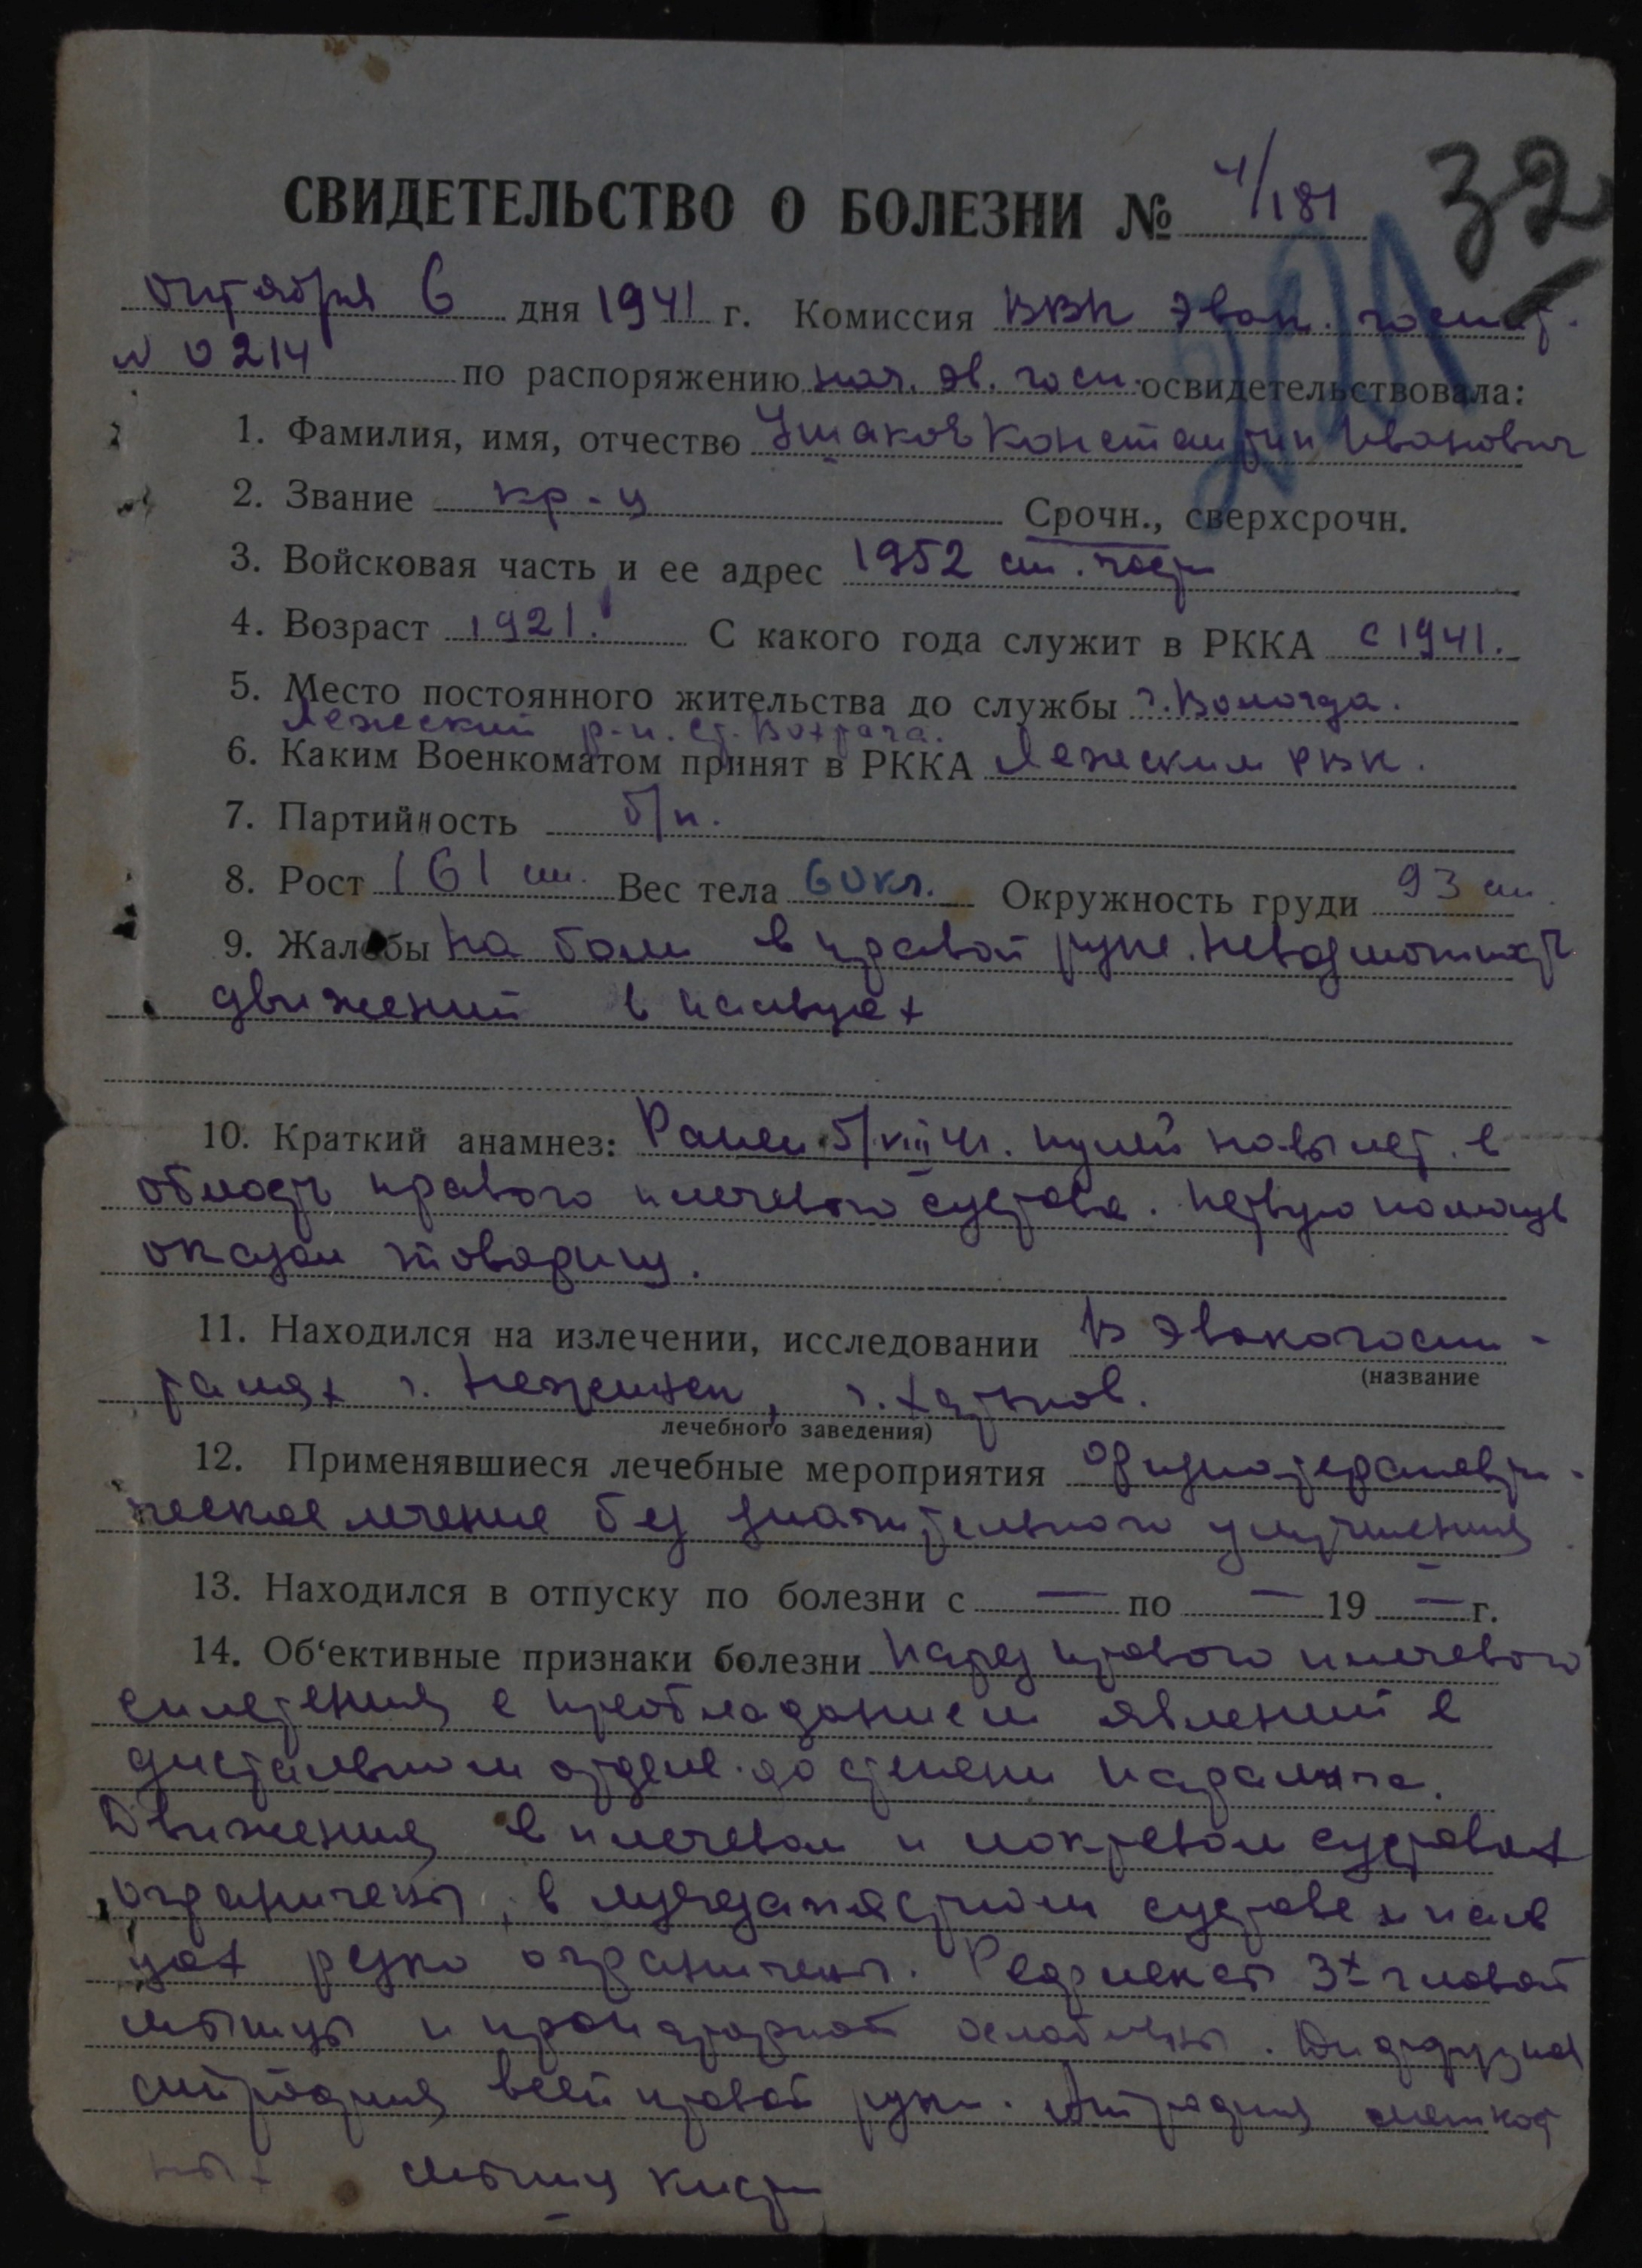 32
СВИДЕТЕЛЬСТВО О БОЛЕЗНИ № 4/181
октября 6 дня 1941 г. Комиссия ВВК эвак. госпит.
№ 0214 по распоряжению нач. эв. госп. освидетельствовала:
1. Фамилия, имя, отчество Ушаков Константин Иванович
2. Звание кр-ц Срочн., сверхсрочн.
3. Войсковая часть и ее адрес 1952 ст. част
4. Возраст 1921. С какого года служит в РККА с 1941.
5. Место постоянного жительства до службы г. Вологда.
Лежский р-н. ст. Вохтога.
6. Каким Военкоматом принят в РККА Лежским РВК.
7. Партийность б/п.
8. Рост 161 см. Вес тела 60 кг. Окружность груди 93 см.
9. Жалобы на боли в правой руке. Невозможность
движений в пальцах
10. Краткий анамнез: Ранен 5/VIII 41. пулей навылет в
область правого плечевого сустава. Первую помощь
оказал товарищ.
11. Находился на излечении, исследовании В эвакогоспи-
(название
талях г. Нежин, г. Харьков.
лечебного заведения)
12. Применявшиеся лечебные мероприятия Физиотерапевти-
ческое лечение без значительного улучшения
13. Находился в отпуску по болезни с — по — 19 — г.
14. Об‘ективные признаки болезни Парез правого плечевого
сплетения с преобладанием явлений в
дистальном отделе до степени паралича.
Движения в плечевом и локтевом суставах
ограничены, в лучезапястном суставе и паль
цах резко ограничены. Рефлексы 3х главой
мышцы и ослаблены. Диффузная
атрофия всей правой руки. Атрофия межкост
ных мышц кисти